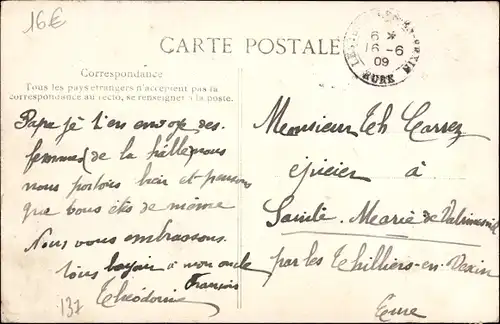 16€
CARTE POSTALE
6 *
16-6
09
EURE
Correspondance
Tous les pays étrangers n'acceptent pas la
correspondance au recto, se renseigner à la poste.
Papa je t'en envoye des
femmes (de la halle) nous
nous portons bien et pensons
que vous êtes de même
Nous vous embrassons
tous à mon oncle
François
Théodorine
137
Monsieur Th Carrez
épicier à
Sainte. Marie de Vatimesnil
par les Thilliers-en-Vexin
Eure